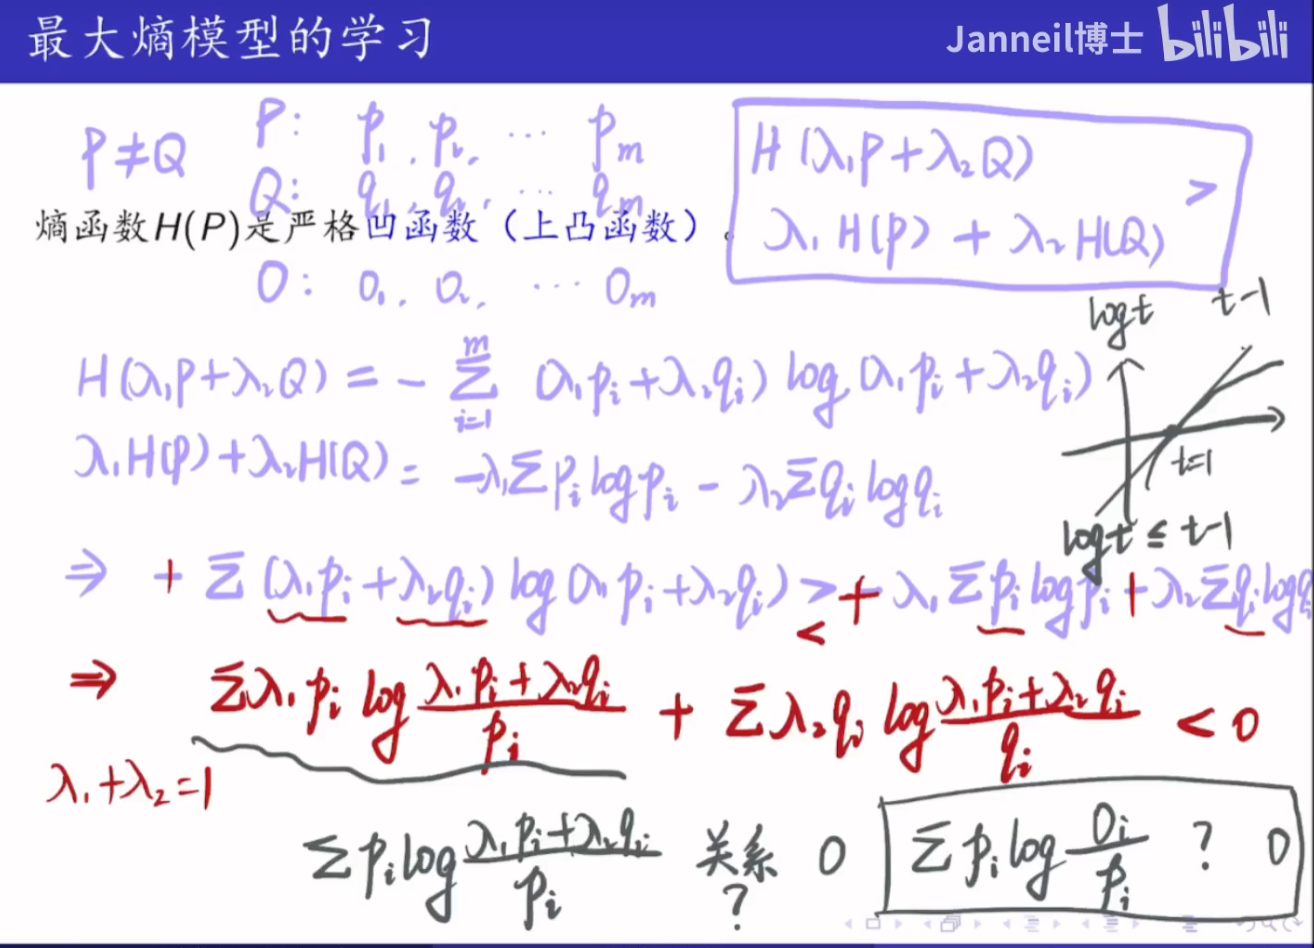 最大熵模型的学习
Janneil博士 bilibili
P≠Q P: p₁, p₂, ⋯ pₘ
Q: q₁, q₂, ⋯ qₘ
熵函数H(P)是严格凹函数（上凸函数）.
O: o₁, o₂, ⋯ oₘ
H(λ₁P+λ₂Q) >
λ₁H(P) + λ₂H(Q)
log t t-1
t=1
log t ≤ t-1
H(λ₁P+λ₂Q) = - Σᵢ₌₁ᵐ (λ₁pᵢ+λ₂qᵢ) log(λ₁pᵢ+λ₂qᵢ)
λ₁H(P)+λ₂H(Q) = -λ₁Σpᵢlogpᵢ - λ₂Σqᵢlogqᵢ
⇒ + Σ(λ₁pᵢ+λ₂qᵢ)log(λ₁pᵢ+λ₂qᵢ) > + λ₁Σpᵢlogpᵢ + λ₂Σqᵢlogqᵢ
<
⇒ Σλ₁pᵢ log (λ₁pᵢ+λ₂qᵢ)/pᵢ + Σλ₂qᵢ log (λ₁pᵢ+λ₂qᵢ)/qᵢ < 0
λ₁+λ₂=1
Σpᵢlog (λ₁pᵢ+λ₂qᵢ)/pᵢ 关系 0
?
Σpᵢlog oᵢ/pᵢ ? 0